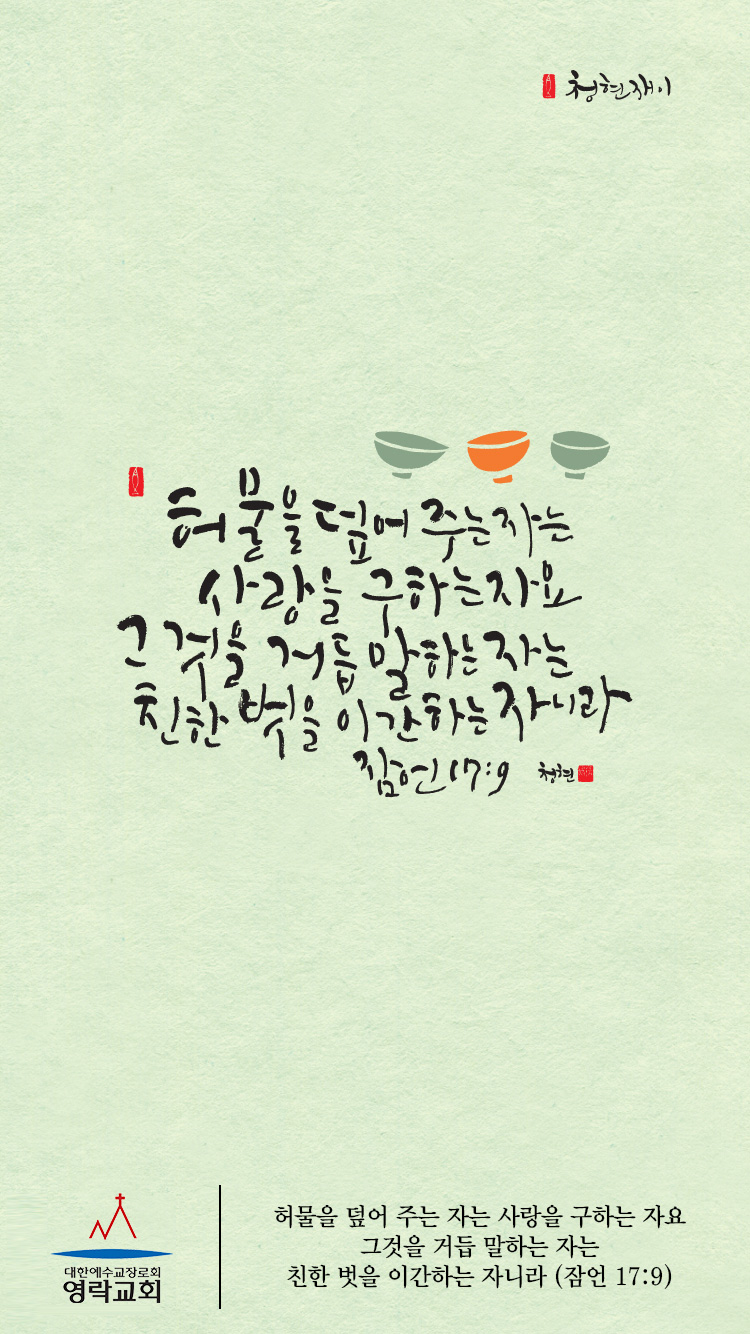 청현재이
허물을 덮어 주는 자는
사랑을 구하는 자요
그것을 거듭 말하는 자는
친한 벗을 이간하는 자니라
잠언 17:9 청현
대한예수교장로회
영락교회
허물을 덮어 주는 자는 사랑을 구하는 자요
그것을 거듭 말하는 자는
친한 벗을 이간하는 자니라 (잠언 17:9)